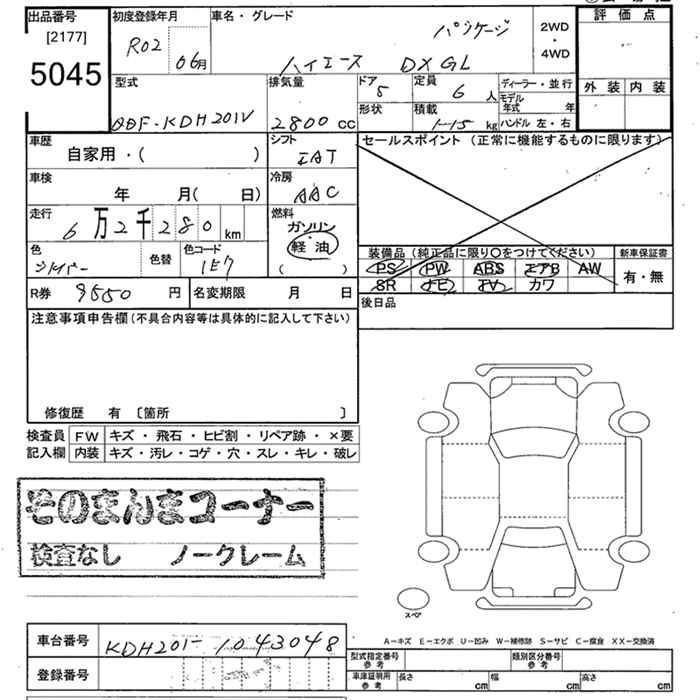 出品番号 初度登録年月 車名・グレード 評価点
[2177]
5045
R02 06月 ハイエース DX GL パッケージ 2WD・4WD
外装 内装
型式 排気量 ドア 5 定員 6 人 ディーラー・並行
QDF-KDH201V 2800 cc 形状 積載 kg モデル年式 年
ハンドル 左・右
車歴 シフト セールスポイント (正常に機能するものに限ります)
自家用・( ) IAT
車検 冷房
年 月( 日) AAC
走行 燃料
6万2千280 km ガソリン・軽油
( )
色 色替 色コード
シルバー 1E7
装備品 (純正品に限り○をつけてください) 新車保証書
PS PW ABS エアB AW 有・無
SR ナビ TV カワ
R券 9550 円 名変期限 月 日 後日品
注意事項申告欄(不具合内容等は具体的に記入して下さい)
修復歴 有 〔箇所 〕
検査員 FW キズ・飛石・ヒビ割・リペア跡・×要
記入欄 内装 キズ・汚レ・コゲ・穴・スレ・キレ・破レ
そのまんまコーナー
検査なし ノークレーム
スペア
A-キズ E-エクボ U-凹み W-補修跡 S-サビ C-腐食 XX-交換済
車台番号 KDH201-1043048
登録番号
型式指定番号 参考 類別区分番号 参考
車庫証明用 参考 長さ cm 幅 cm 高さ cm